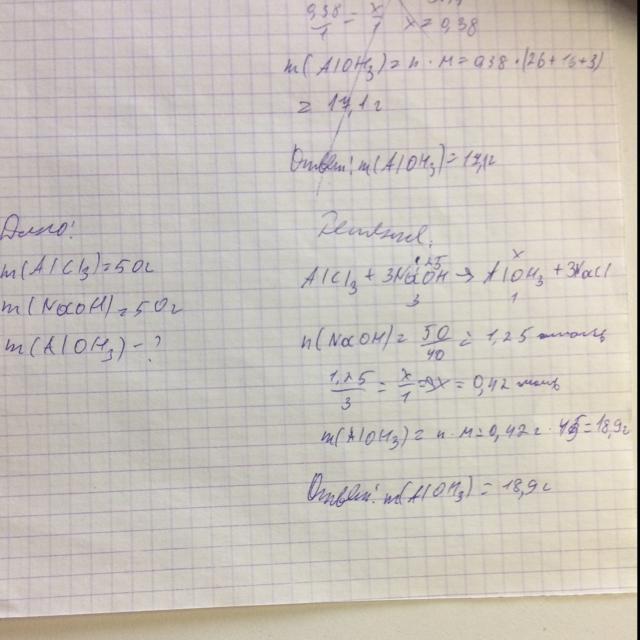 0,38/1 = x/1 x = 0,38
m(AlOH3) = n · M = 0,38 · (26+16+3)
= 17,1 г
Ответ: m(AlOH3) = 17,1г
Дано:
m(AlCl3) = 50г
m(NaOH) = 50г
m(AlOH3) - ?
Решение.
1,25 x
AlCl3 + 3NaOH → AlOH3 + 3NaCl
3 1
n(NaOH) = 50/40 = 1,25 моль
1,25/3 = x/1 => x = 0,42 моль
m(AlOH3) = n · M = 0,42 г · 45 = 18,9г
Ответ: m(AlOH3) = 18,9г